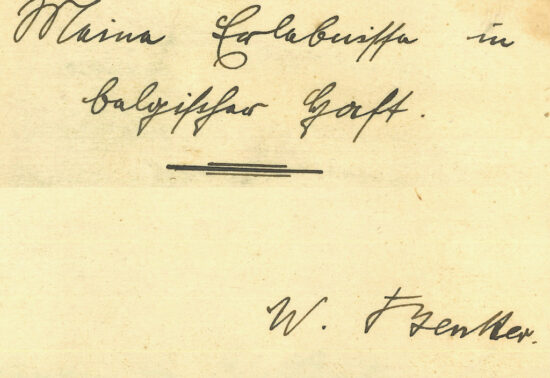 Meine Erlebnisse in
belgischer Haft.
W.